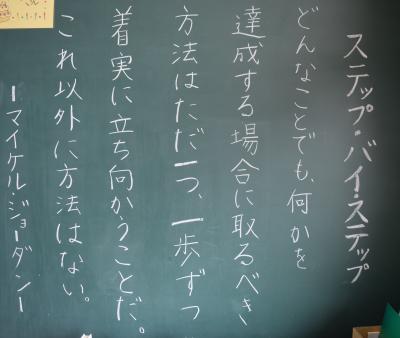 ステップ・バイ・ステップ
どんなことでも、何かを
達成する場合に取るべき
方法はただ一つ、一歩ずつ
着実に立ち向かうことだ。
これ以外に方法はない。
ーマイケル・ジョーダンー